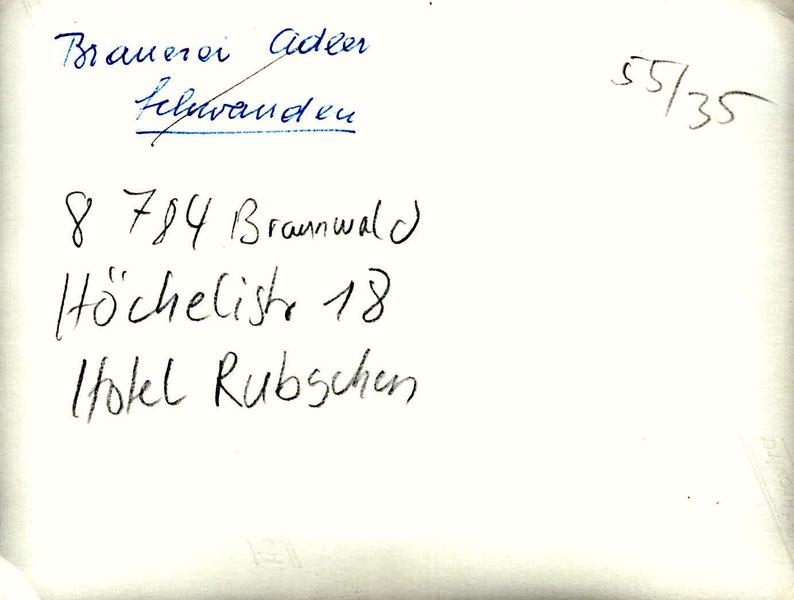 Brauerei Adler
Schwanden
55/35
8784 Braunwald
Höchelistr 18
Hotel Rubschen